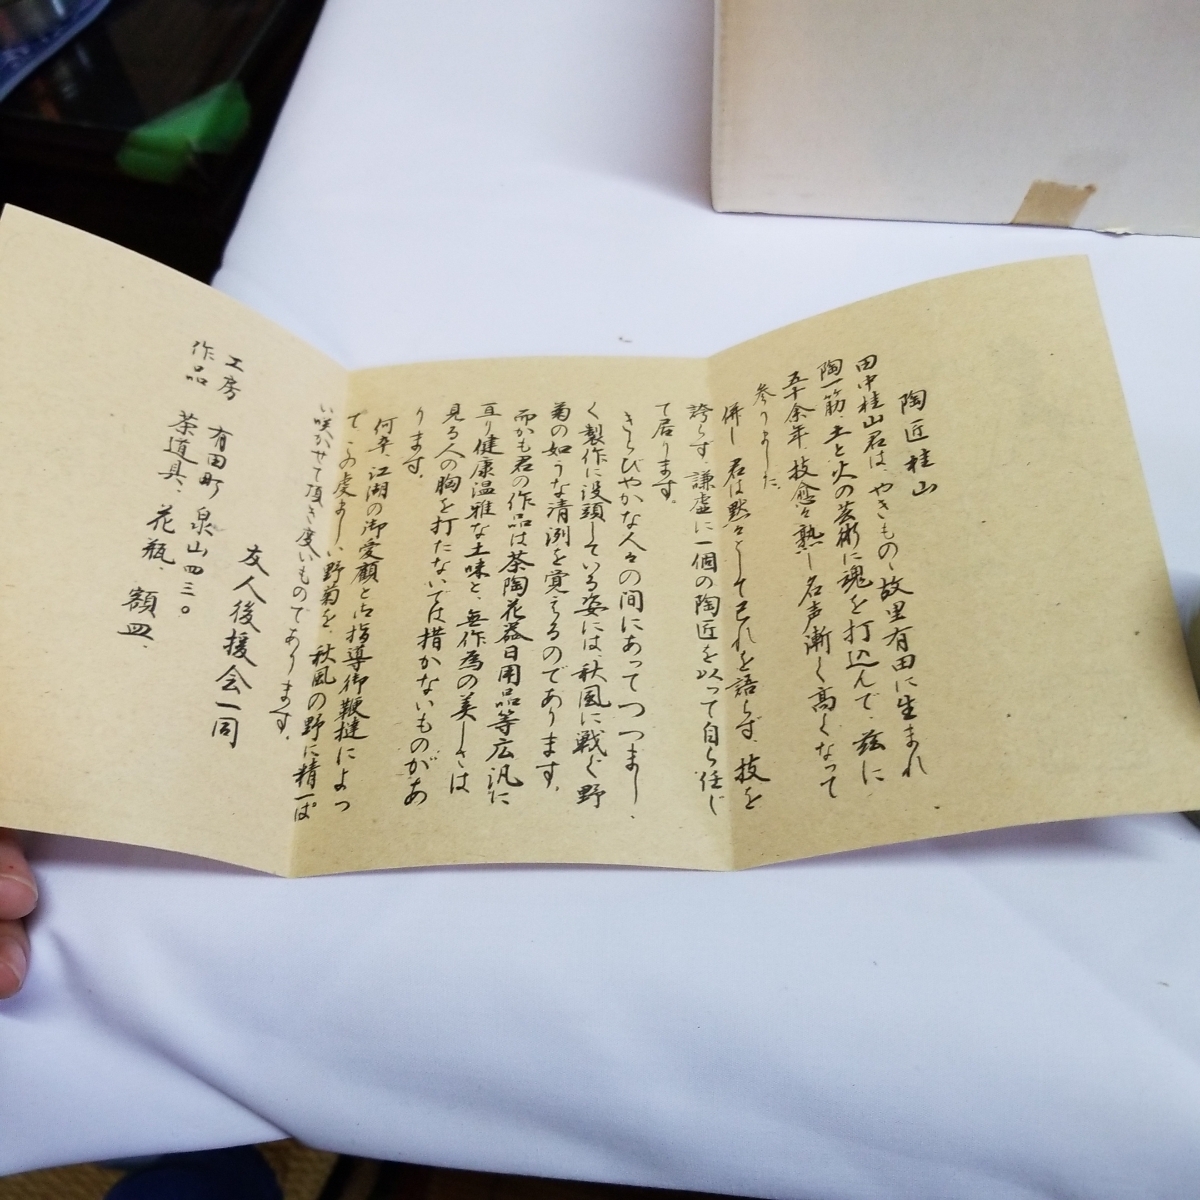 陶匠桂山
田中桂山君は、やきもの、故里有田に生まれ
陶一筋、土と火の芸術に魂を打込んで、茲に
五十余年、技愈々熟し名声漸く高くなって
参りました。
併し、君は黙々として己れを語らず、技を
誇らず、謙虚に一個の陶匠を以って自ら任じ
て居ります。
きらびやかな人々の間にあってつつましく
く製作に没頭している姿には、秋風に戦ぐ野
菊の如うな清洌を覚えるのであります。
而かも君の作品は茶陶花器日用品等広汎に
亘り健康温雅な土味と、無作為の美しさは
見る人の胸を打たないでは措かないものがあ
ります。
何卒、江湖の御愛顧と御指導御鞭撻によっ
て、この虔ましい野菊を、秋風の野に精一ぱ
い咲かせて頂き度いものであります。
友人後援会一同
工房 有田町 泉山四三〇
作品 茶道具、花瓶、額皿、